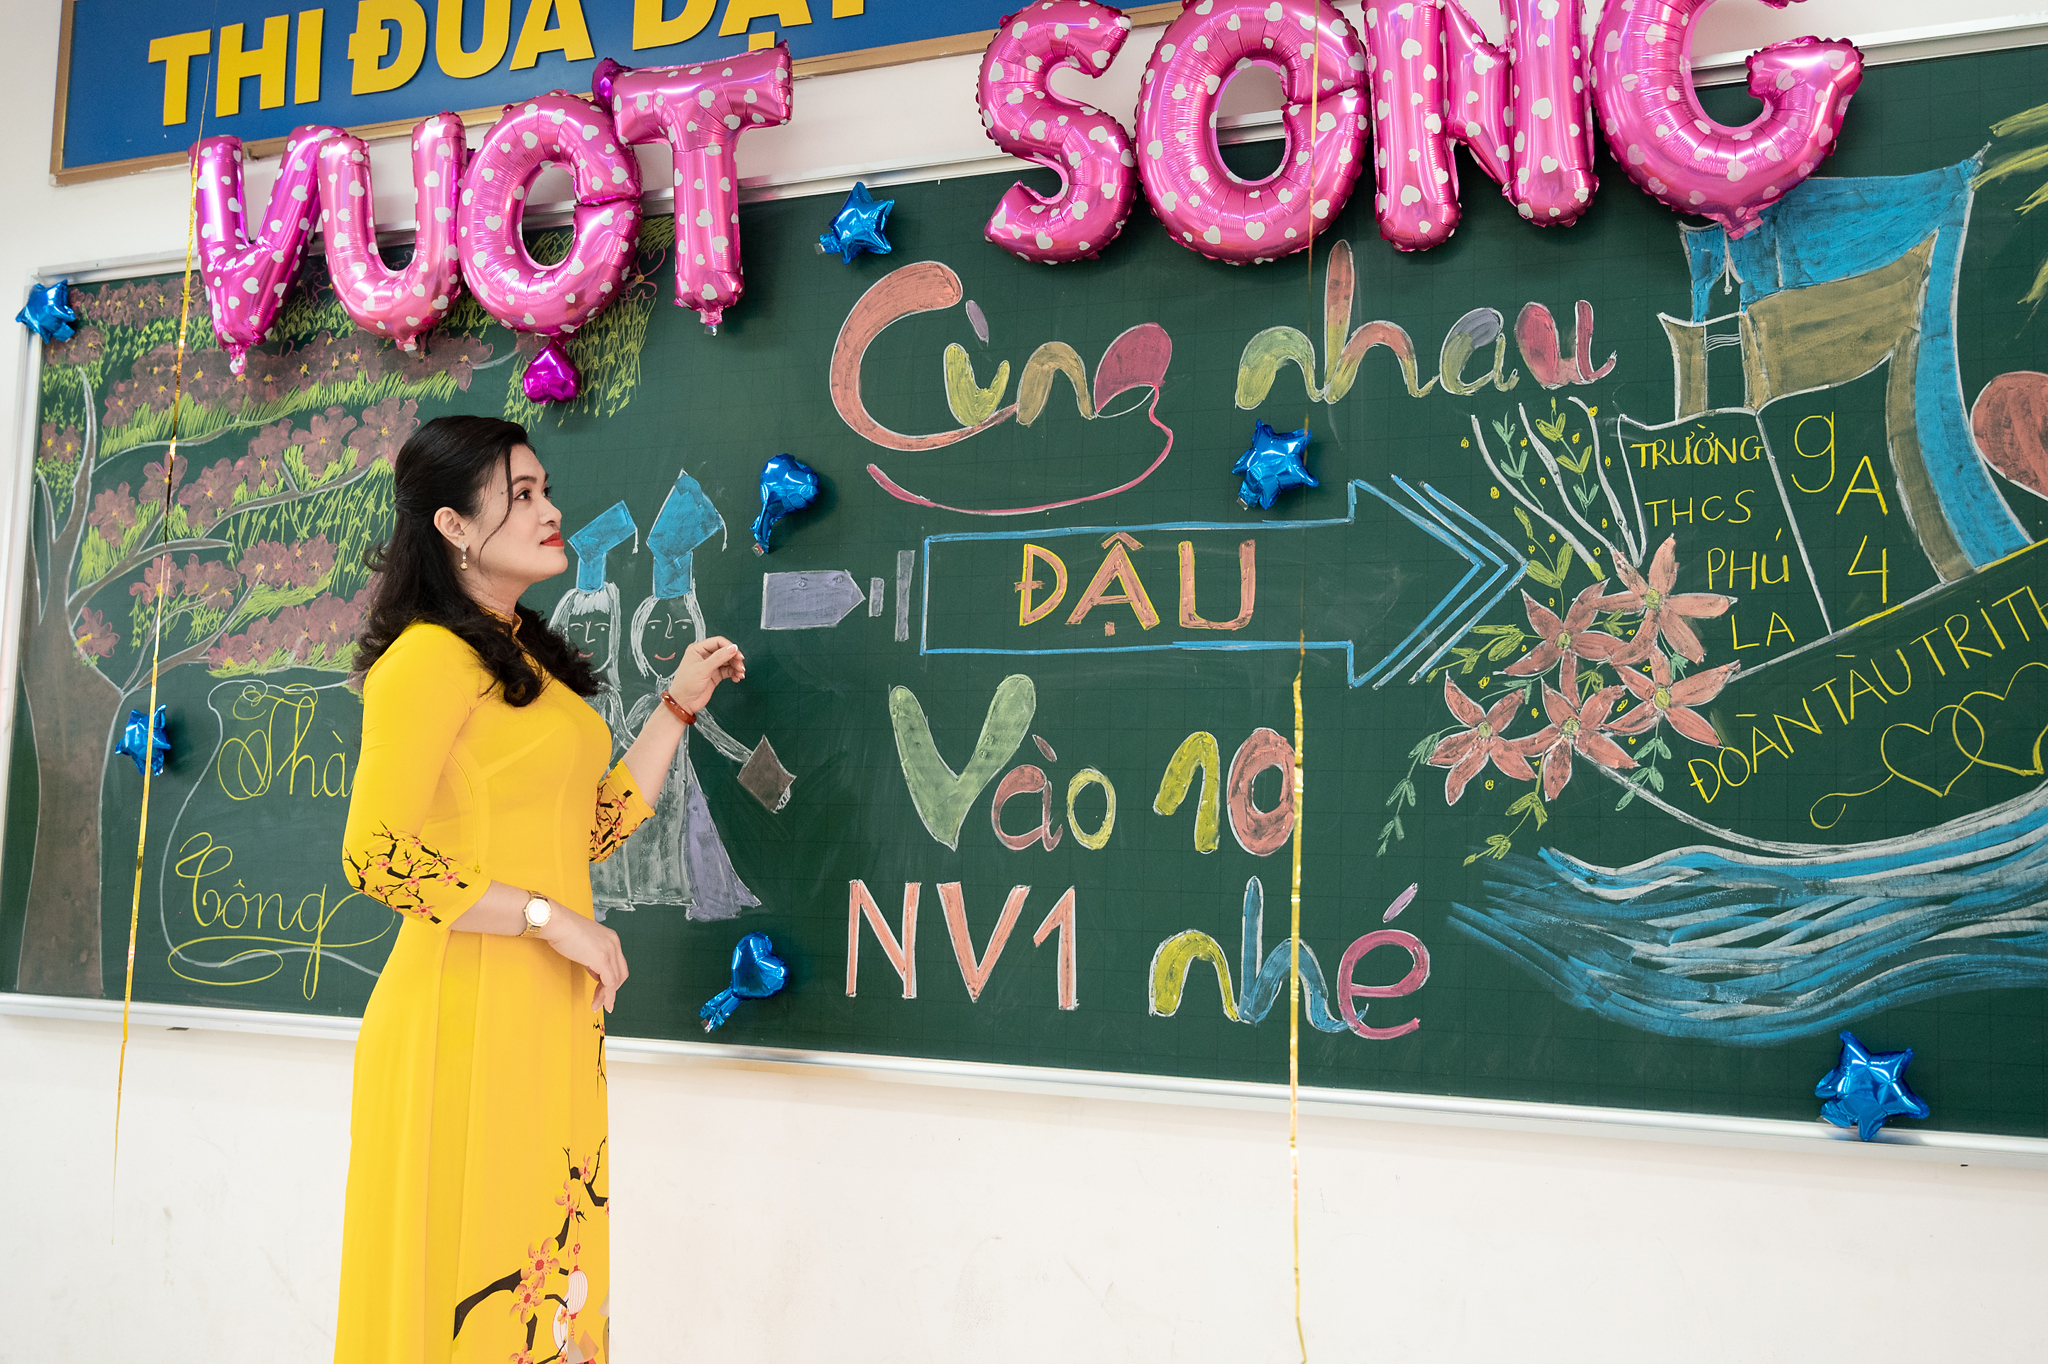 THI ĐUA DẠY
VƯỢT SONG
Cùng nhau
ĐẬU
Vào 10
NV1 nhé
Thà
Công
TRƯỜNG
THCS
PHÚ
LA
9
A
4
ĐOÀN TÀU TRI TH